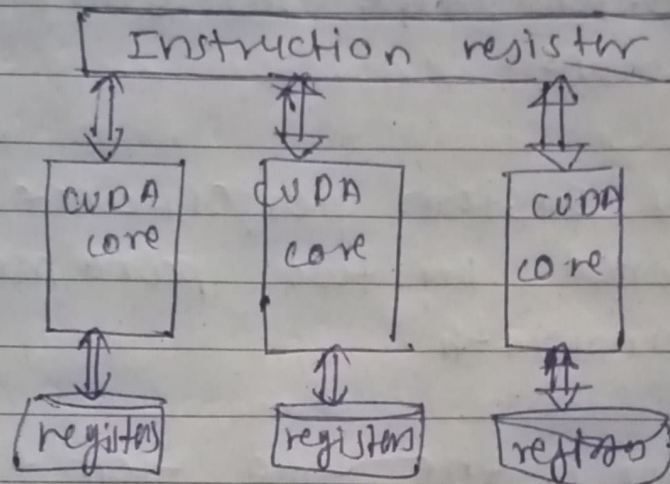 Instruction register
CUDA
core
CUDA
core
CUDA
core
registers
registers